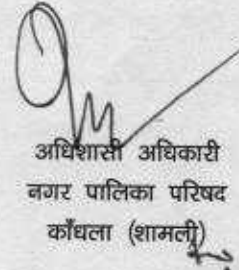 अधिशासी अधिकारी
नगर पालिका परिषद
काँधला (शामली)